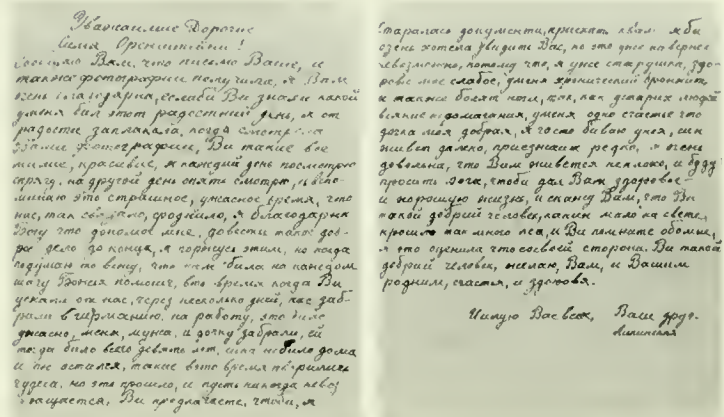 Уважаемие Дорогие
Семя Оренштейни!
Вам, что письмо Ваше, и
также фотографии получила, я Вам
очень благодарна, если би Ви знали какой
у меня бил этот радостний день, я от
радости заплакала, когда смотрела
фотографии, Ви такие все
милие, красивие, я каждий день посмотрю
спрячу, на другой день опять смотрю,
это страшное, ужасное время, что
нас, так сроднило, я благодарна
Богу что допомог мне, довести такое доб-
рое дело до конца, я горжусь этим, но когда
подумаю то вижу, что нам била на каждом
шагу Божия помощь, в то время когда Ви
от нас, через несколько дней, нас заб-
рали в Германию, на работу, это било
ужасно, меня, мужа, и дочку забрали, ей
тогда било всего девять лет, не било дома
и он остался, такие в то время творились
чудеса, но это прошло, и пусть никогда не воз
вращается, Ви предлагаете, чтоби, я
старалась документи, я би
очень хотела увидить Вас, но это уже наверное
невозможно, потому что, я уже старушка, здо-
ровье мое слабое, у меня хронический бронхит
и также болят ноги, так, как у старих людей
всякие недомагания, у меня одно счастье что
дочка моя добрая, я часто биваю у нея, син
живет далеко, приезжает редко, я очень
довольна, что Вам живется неплохо, и буду
просить Бога, чтоби дал Вам здоровье
и хорошую жизнь, и скажу Вам, что Ви
такой добрий человек, каких мало на свете,
прошло так много лет, и Ви помните обо мне,
я это оценила что со своей сторони, Ви такой
добрий человек, желаю, Вам, и Вашим
родним, счастя, и здоровя.
Целую Вас всех, Ваш друг.